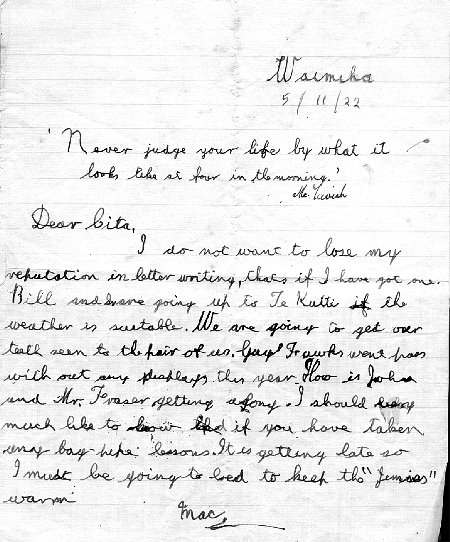 Waimiha
5/11/22
'Never judge your life by what it
looks like at four in the morning.'
Mc.Tavish
Dear Cita,
I do not want to lose my
reputation in letter writing, thats if I have got one.
Bill and are going up to Te Kutti if the
weather is suitable. We are going to get our
teeth seen to the pair of us. Guy Frawks went pass
with out any displays this year. How is John
and Mr. Fraser getting along. I should
much like to if you have taken
any bag pipe lessons. It is getting late so
I must be going to bed to keep the
warm
Mac,